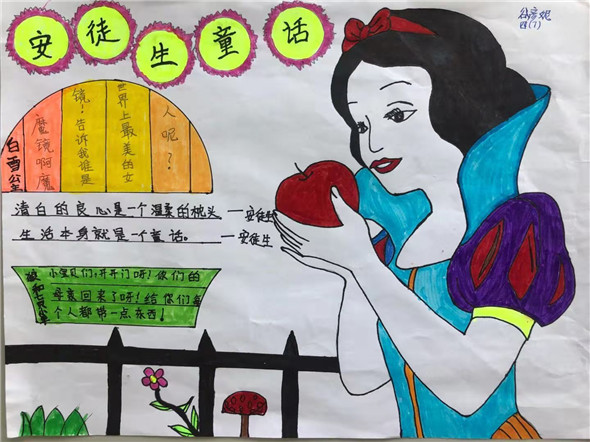 安徒生童话
四(7)
白雪公主
魔镜啊魔
镜!告诉我谁是
世界上最美的女
人呢?
清白的良心是一个温柔的枕头——安徒生
生活本身就是一个童话。——安徒生
狼和七只小羊
小宝贝们,开开门呀!你们的
妈妈回来了呀!给你们每
个人都带一点东西!